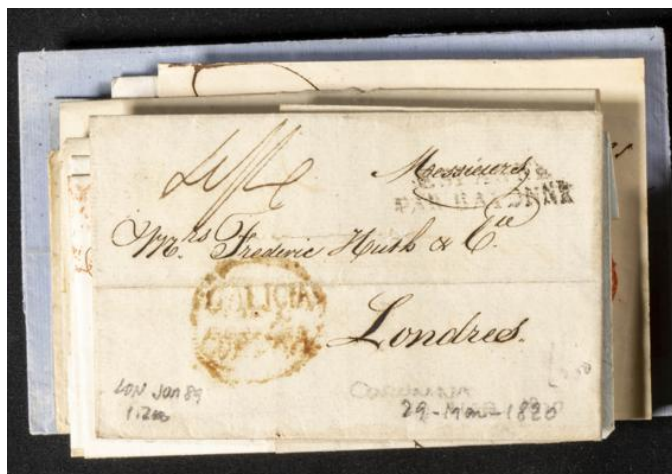 Messieurs,
PAR BAYONNE
M.rs Frederic Huth & C.ie
GALICIA
Londres.
LON Jan 89
29-Mar-1820